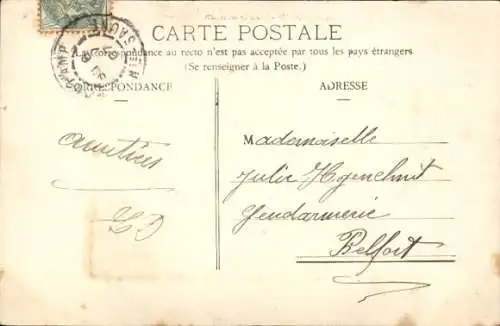 CARTE POSTALE
La Correspondance au recto n'est pas acceptée par tous les pays étrangers
(Se renseigner à la Poste.)
CORRESPONDANCE
ADRESSE
Amitiés
Mademoiselle
Julie
Gendarmerie
Belfort